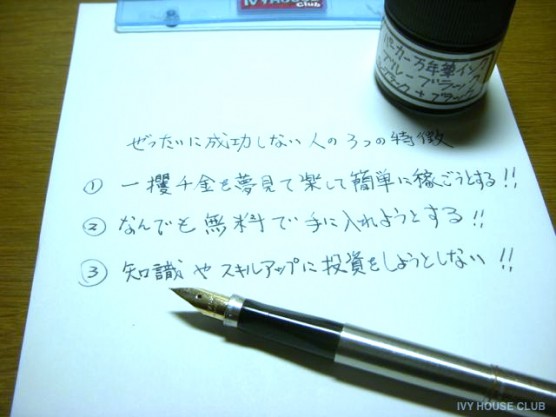 IVY HOUSE
Club
パーカー万年筆インク
ブルーブラック
ぜったいに成功しない人の3つの特徴
① 一攫千金を夢見て楽して簡単に稼ごうとする!!
② なんでも無料で手に入れようとする!!
③ 知識やスキルアップに投資をしようとしない!!
IVY HOUSE CLUB